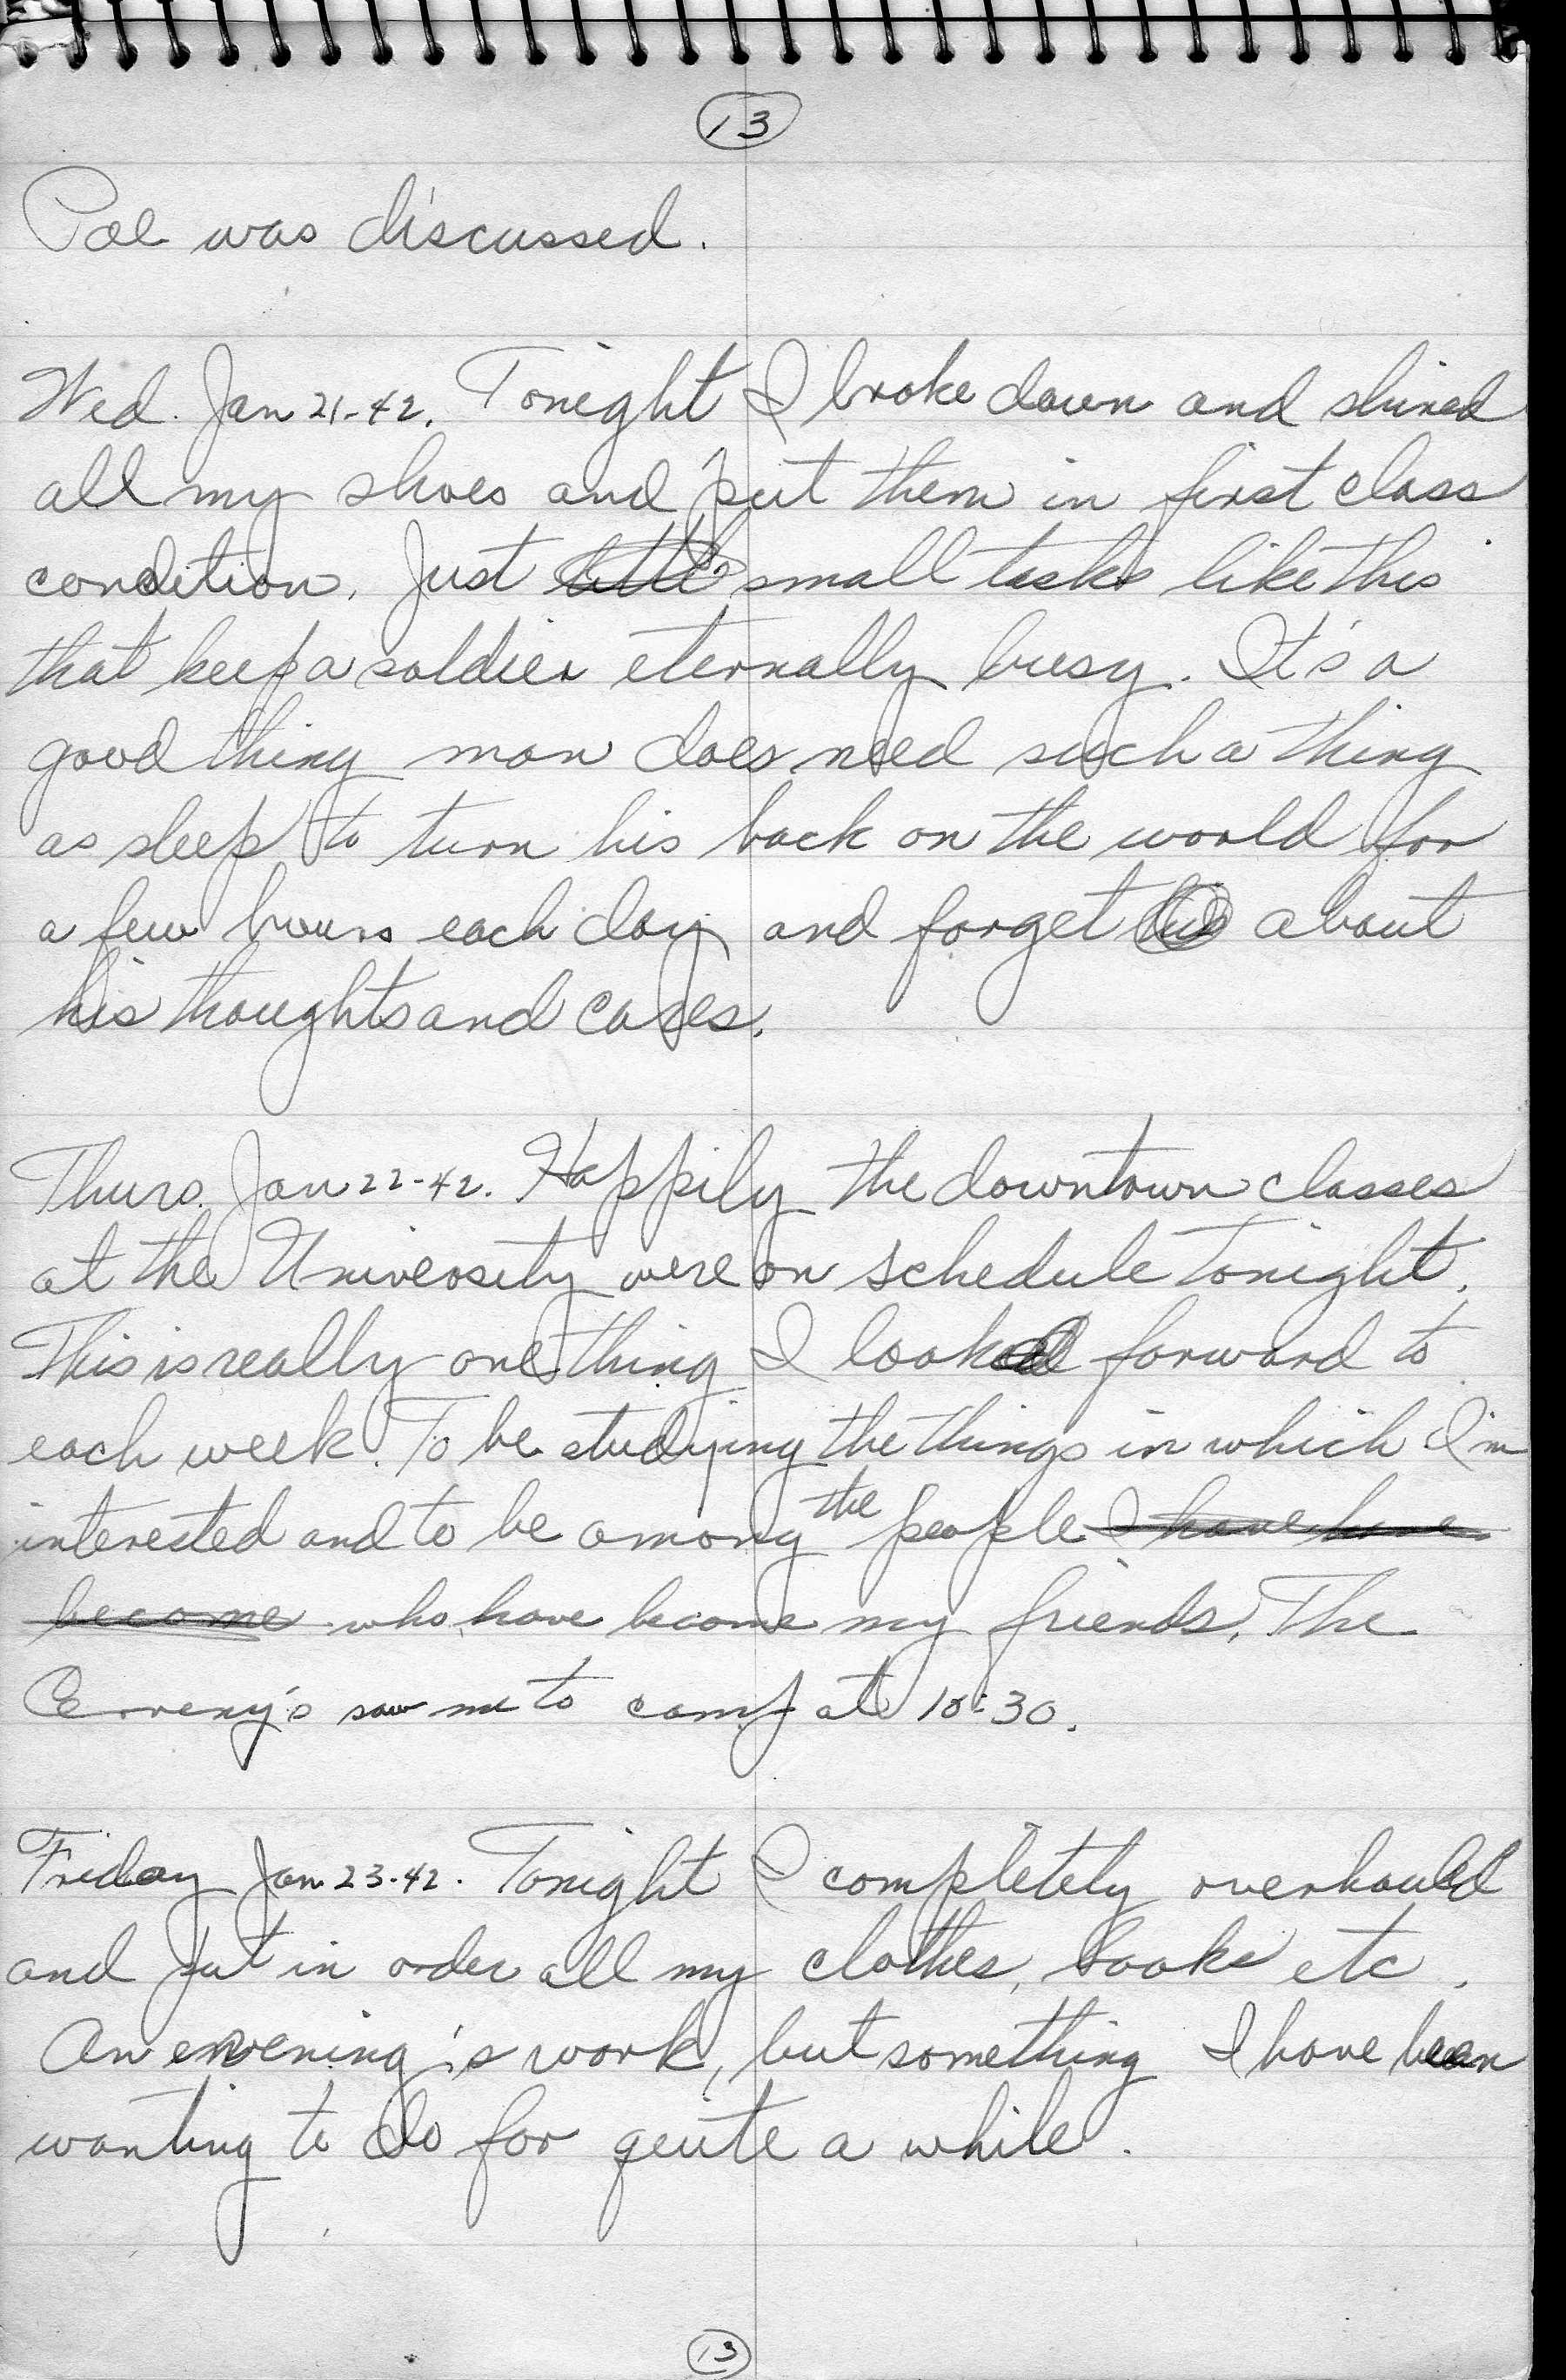 13
Poe was discussed.
Wed. Jan 21-42. Tonight I broke down and shined
all my shoes and put them in first class
condition. Just little small tasks like this
that keep a soldier eternally busy. It's a
good thing man does need such a thing
as sleep to turn his back on the world for
a few hours each day and forget his about
his thoughts and cares.
Thurs. Jan 22-42. Happily the downtown classes
at the University were on schedule tonight.
This is really one thing I look forward to
each week. To be studying the things in which I'm
interested and to be among the people I have have
become who have become my friends. The
Cerveny's saw me to camp at 10:30.
Friday Jan 23-42. Tonight I completely overhauled
and put in order all my clothes, books etc.
An evening's work, but something I have been
wanting to do for quite a while.
13